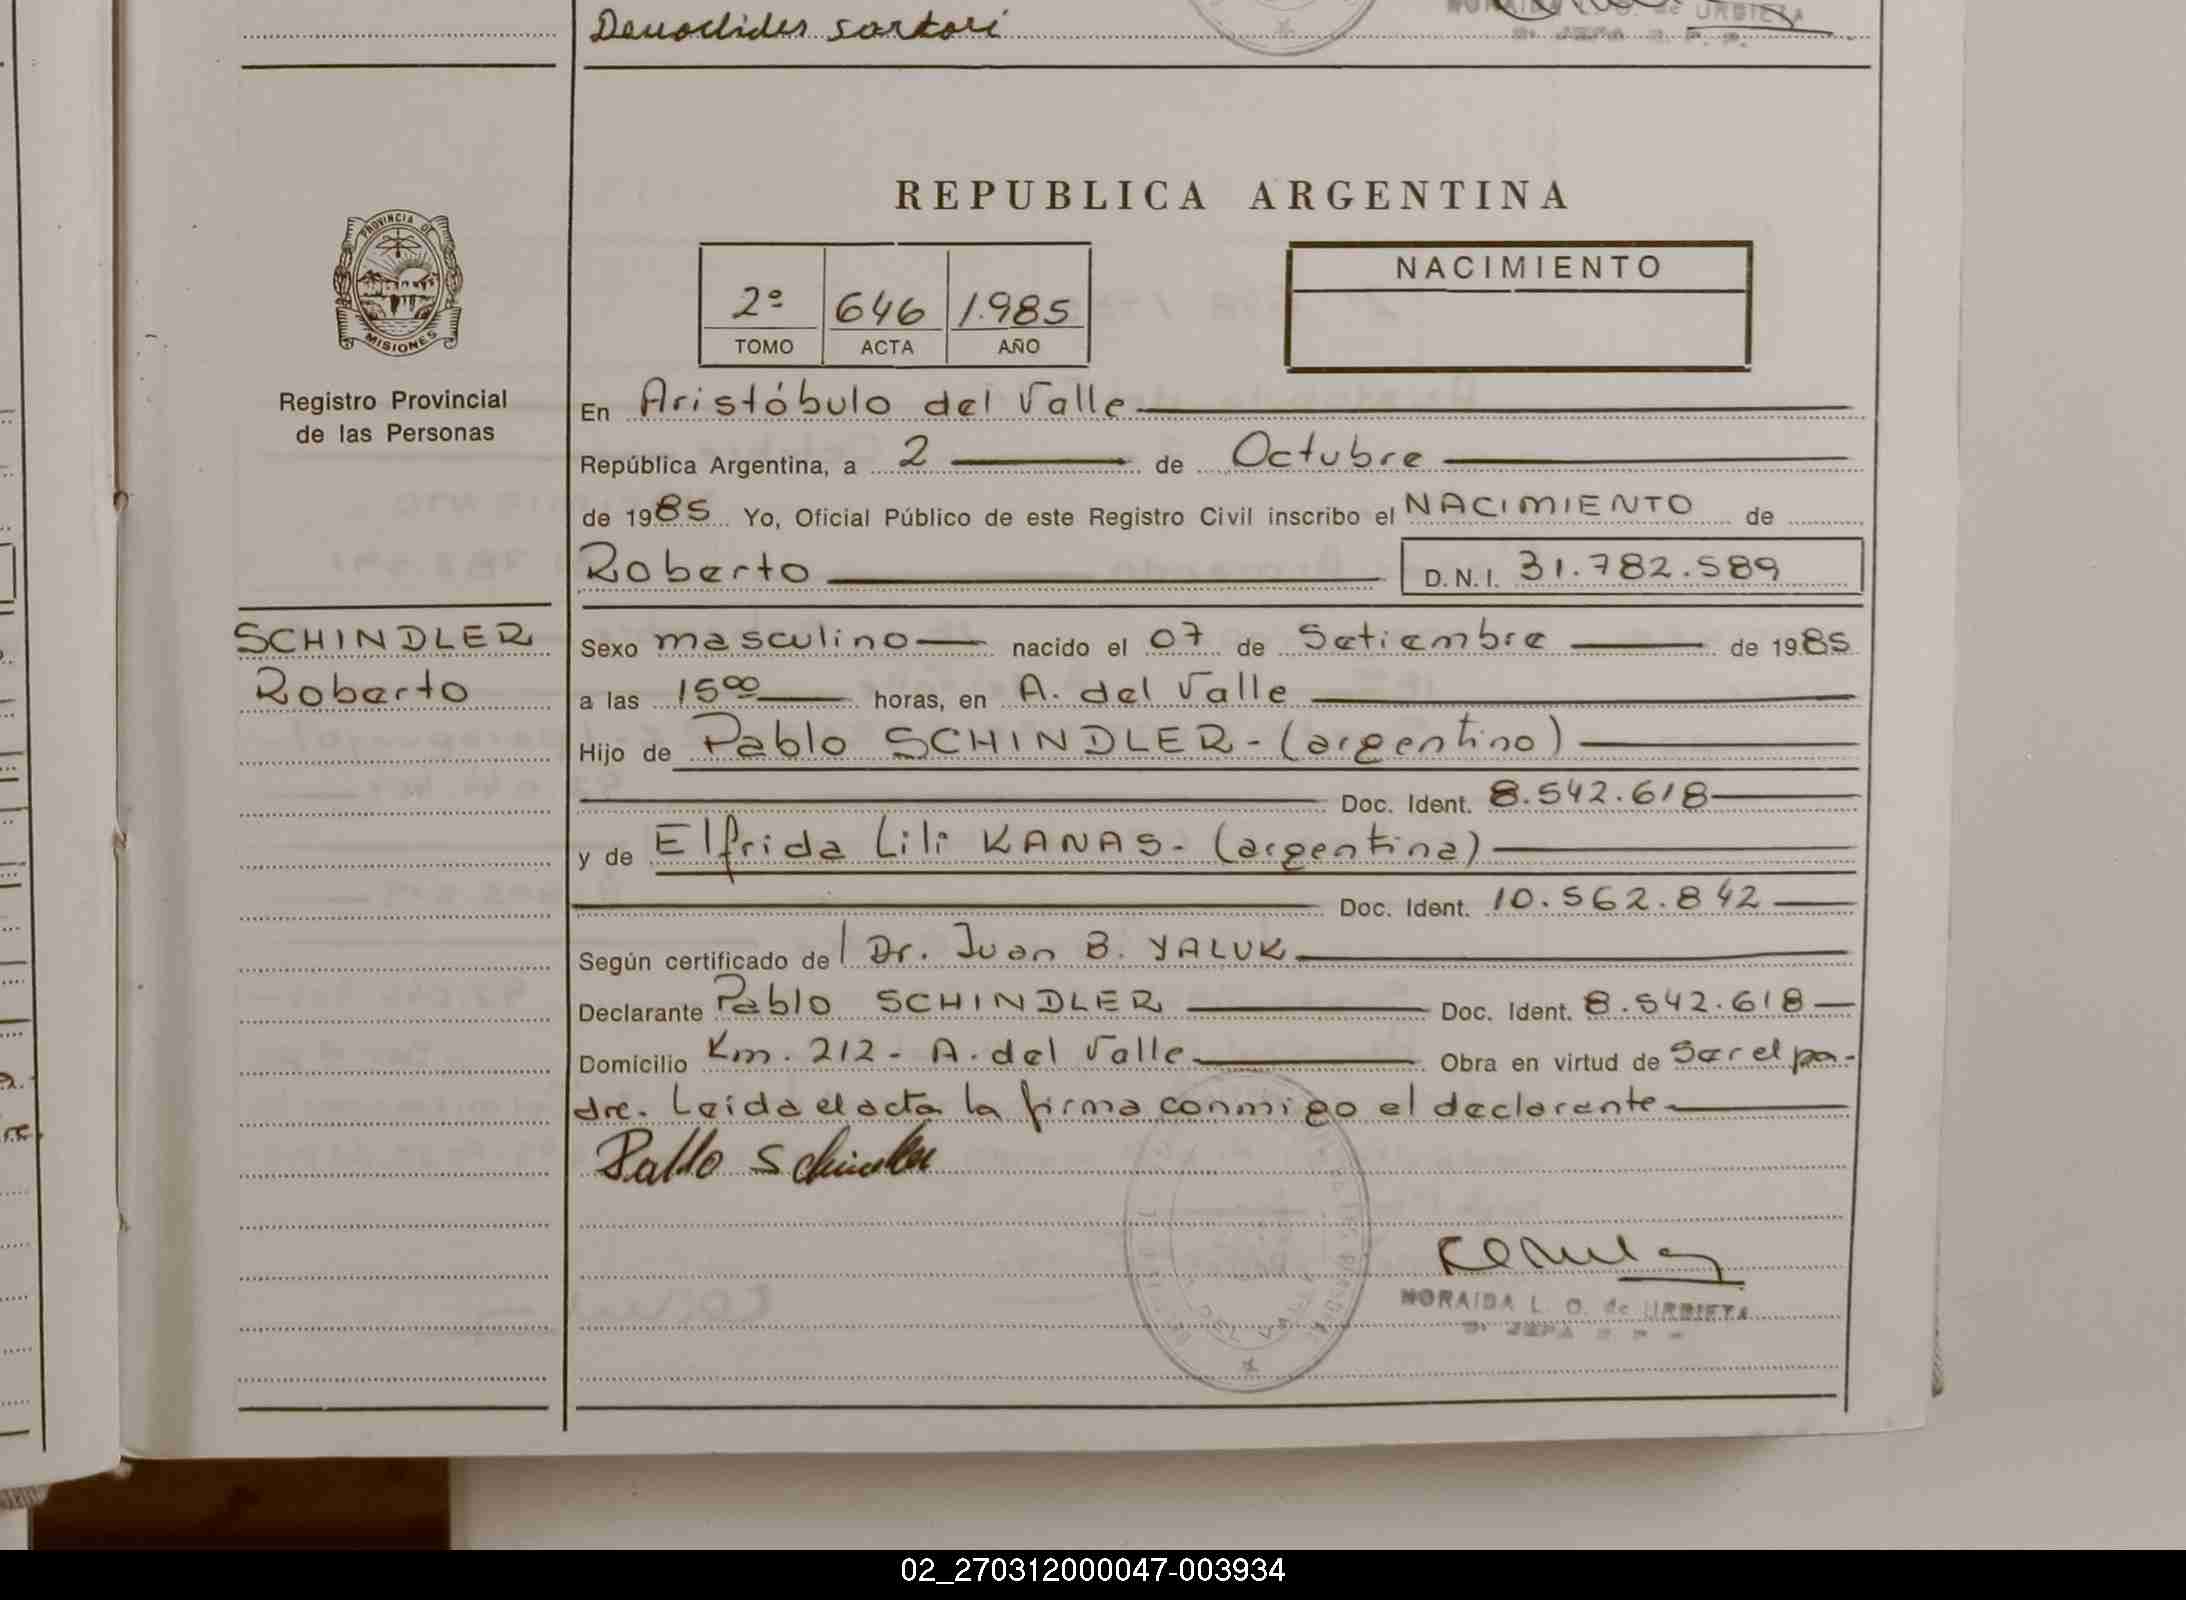 Democlides Sartori
NORAIDA L. O. de URBIETA
REPUBLICA ARGENTINA
PROVINCIA DE
MISIONES
Registro Provincial
de las Personas
2º 646 1.985
TOMO ACTA AÑO
NACIMIENTO
En Aristóbulo del Valle
República Argentina, a 2 de Octubre
de 1985 Yo, Oficial Público de este Registro Civil inscribo el NACIMIENTO de
Roberto D.N.I. 31.782.589
SCHINDLER
Roberto
Sexo masculino nacido el 07 de Setiembre de 1985
a las 1500 horas, en A. del Valle
Hijo de Pablo SCHINDLER - (argentino)
Doc. Ident. 8.542.618
y de Elfrida Lili KANAS - (argentina)
Doc. Ident. 10.562.842
Según certificado del Dr. Juan B. YALUK
Declarante Pablo SCHINDLER Doc. Ident. 8.542.618
Domicilio Km. 212 - A. del Valle Obra en virtud de ser el pa-
dre. Leída el acta la firma conmigo el declarante
Pablo Schindler
NORAIDA L. O. de URBIETA
JEFA
02_270312000047-003934